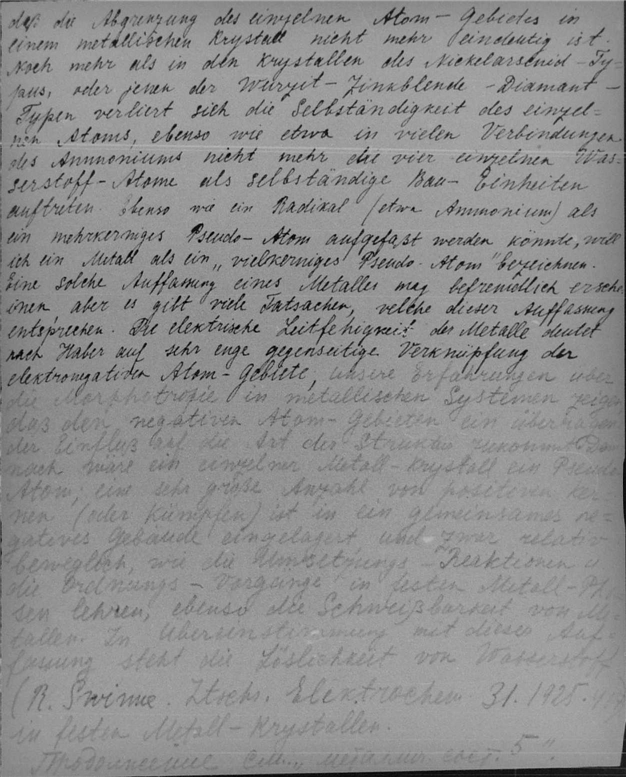 daß die Abgrenzung des einzelnen Atom-Gebietes in
einem metallischen Krystall nicht mehr eindeutig ist.
Noch mehr als in den Krystallen des Nickelarsenid-Ty-
pus, oder jenen der Wurzit-Zinkblende-Diamant-
Typen verliert sich die Selbständigkeit des einzel=
nen Atoms, ebenso wie etwa in vielen Verbindungen
des Ammoniums nicht mehr die vier einzelnen Was=
serstoff-Atome als selbständige Bau-Einheiten
auftreten. Ebenso wie ein Radikal (etwa Ammonium) als
ein mehrkerniges Pseudo-Atom aufgefaßt werden könnte, will
ich ein Metall als ein „vielkerniges Pseudo-Atom" bezeichnen.
Eine solche Auffassung eines Metalles mag befremdlich ersche
inen aber es gibt viele Tatsachen, velche dieser Auffassung
entsprechen. Die elektrische Leitfehigkeit der Metalle deutet
nach Haber auf sehr enge gegenseitige Verknüpfung der
elektronegativen Atom-Gebiete, unsere Erfahrungen über
die Morphotropie in metallischen Systemen zeigen
daß den negativen Atom-Gebieten ein
der Einfluß auf die Art der Struktur zukommt.
nach wäre ein einzelner Metall-Krystall ein Pseudo
Atom; eine sehr große Anzahl von positiven Ker-
nen (oder Rümpfen) ist in ein gemeinsames ne-
gatives Gebäude eingelagert und zwar relativ
beweglich, wie die Umsetzungs-Reaktionen u
die Ordnungs-Vorgänge in festen Metall-
sen lehren, ebenso die Schweißbarkeit von Me
tallen. In Übereinstimmung mit dieser Auf-
fassung steht die Löslichkeit von Wasserstoff
(R. Swinne. Ztschr. Elektrochem 31. 1925.
in festen Metall-Krystallen.
Продолжение см. „ 5".